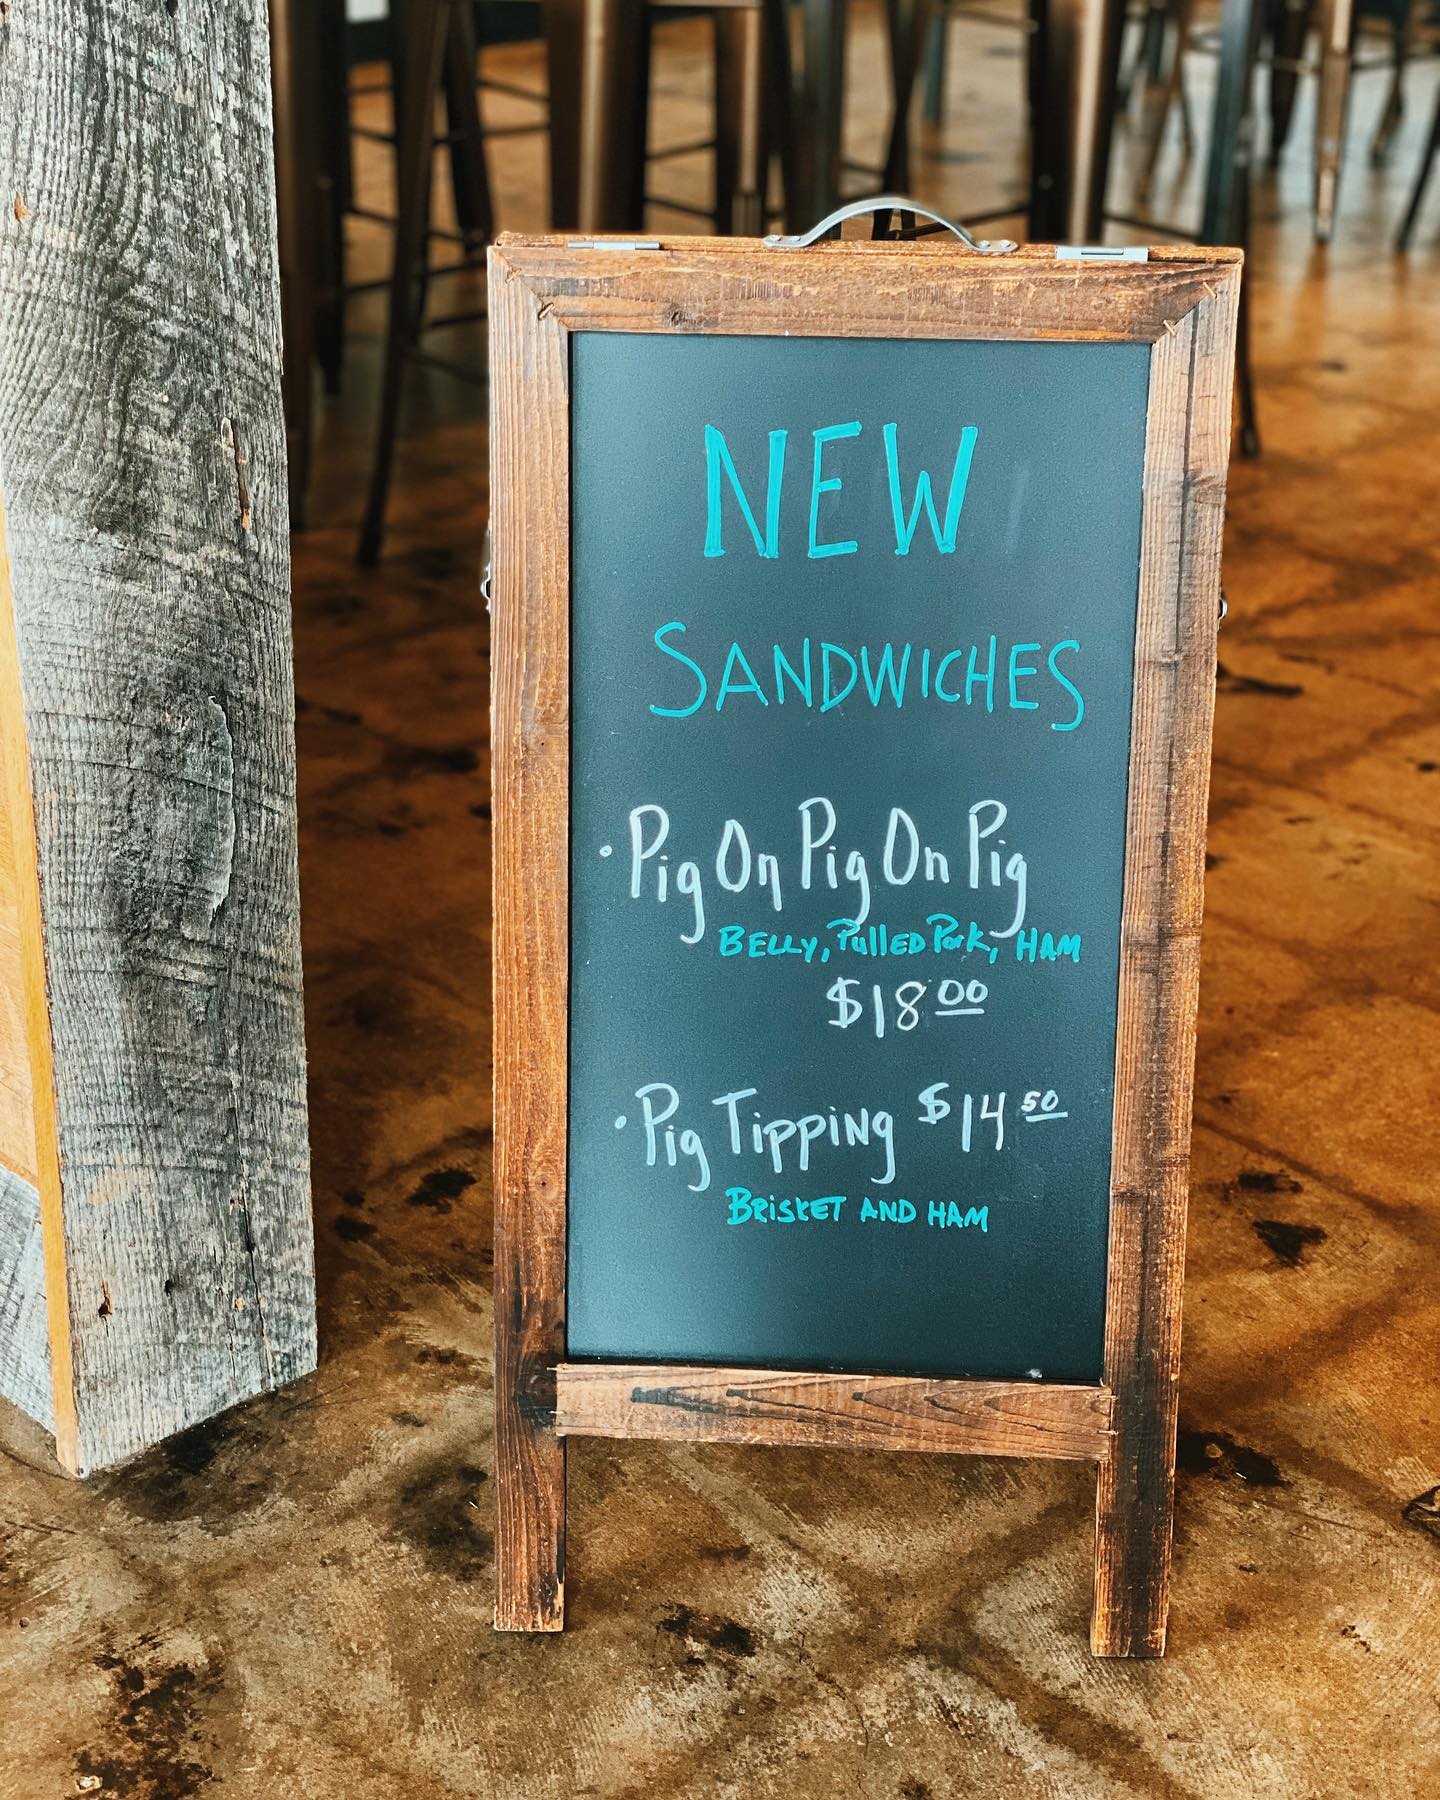 NEW
SANDWICHES
• Pig On Pig On Pig
BELLY, PullED Pork, HAM
$18.00
• Pig Tipping $14.50
BRISKET AND HAM